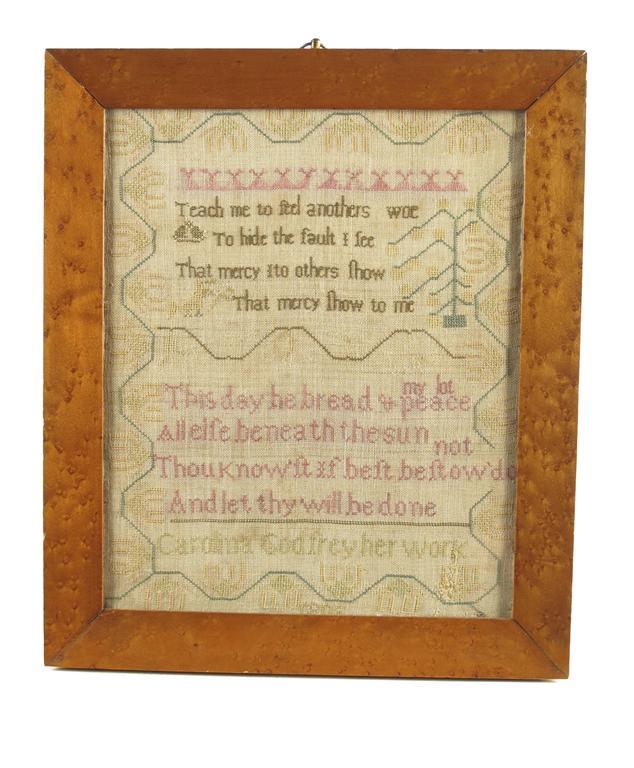 Teach me to feel anothers woe
To hide the fault I see
That mercy I to others ſhow
That mercy ſhow to me
my lot
This day be bread & peace
All elſe beneath the sun
not
Thou know'ſt if beſt beſtow'd o
And let thy will be done
Carolina Godfrey her work